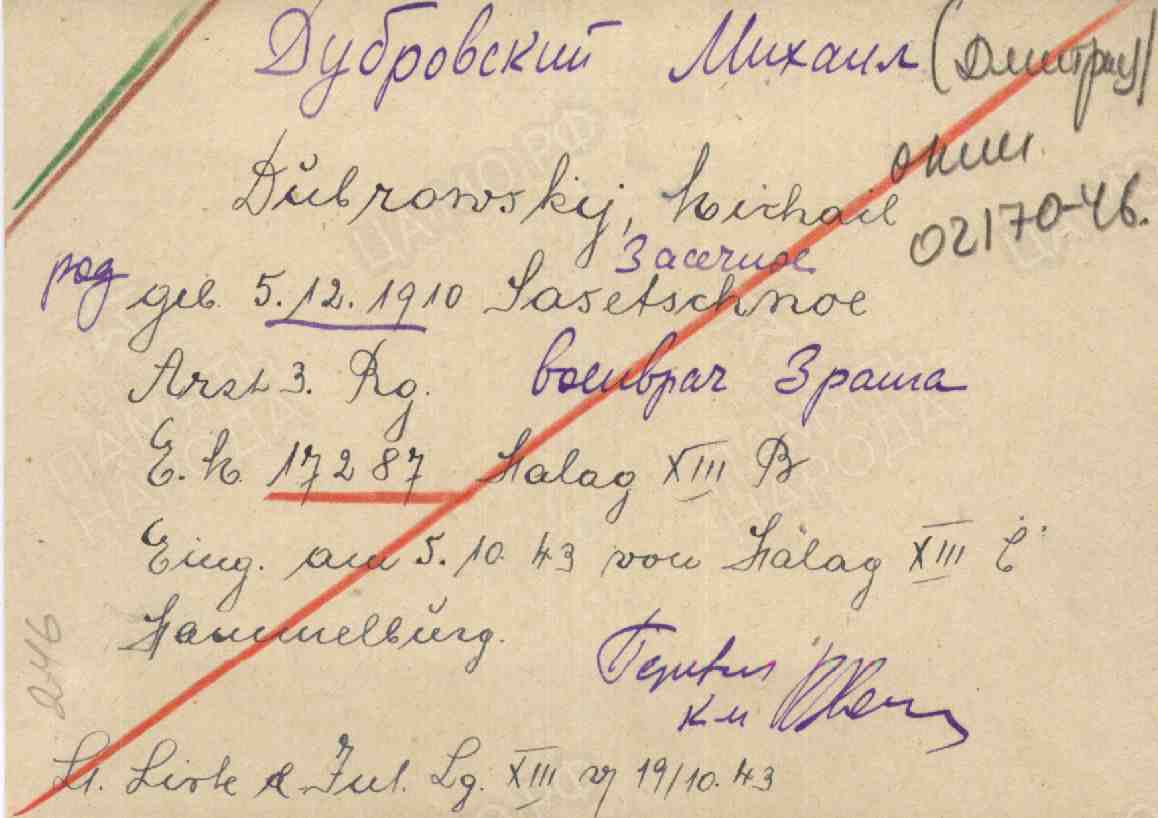 Дубровский Михаил (Дмитрий)
опии
02170-46.
Dŭbrowskij, Michail
Засечное
род geb. 5.12.1910 Sasetschnoe
Arzt 3. Rg. военврач 3 ранга
E.K. 17287 Stalag XIII B
Eing. am 5.10.43 von Stalag XIII C
Hammelbŭrg.
2146
Перевел
К-и
Lt. Liste d. Lg. XIII v. 19/10.43